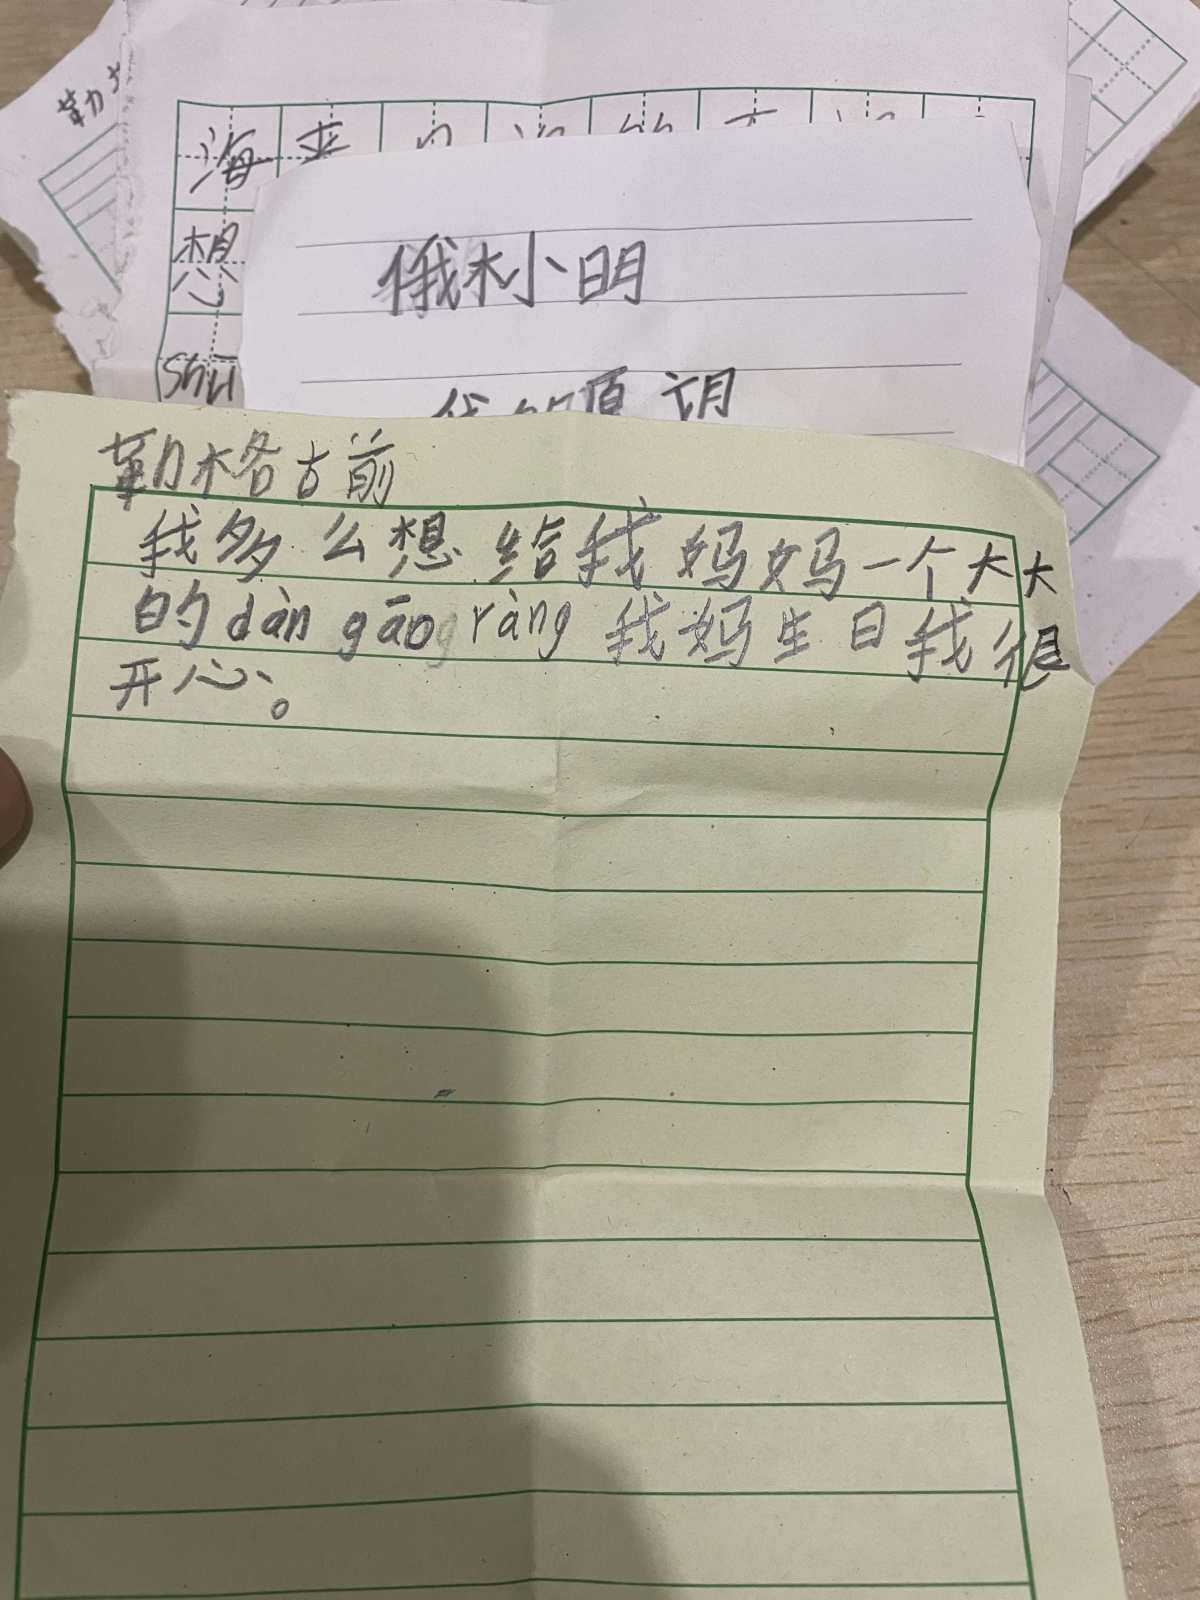 勒
海来
想
shu
俄木小明
我的愿望
勒格古前
我多么想给我妈妈一个大大
的dàn gāo ràng 我妈生日我很
开心。